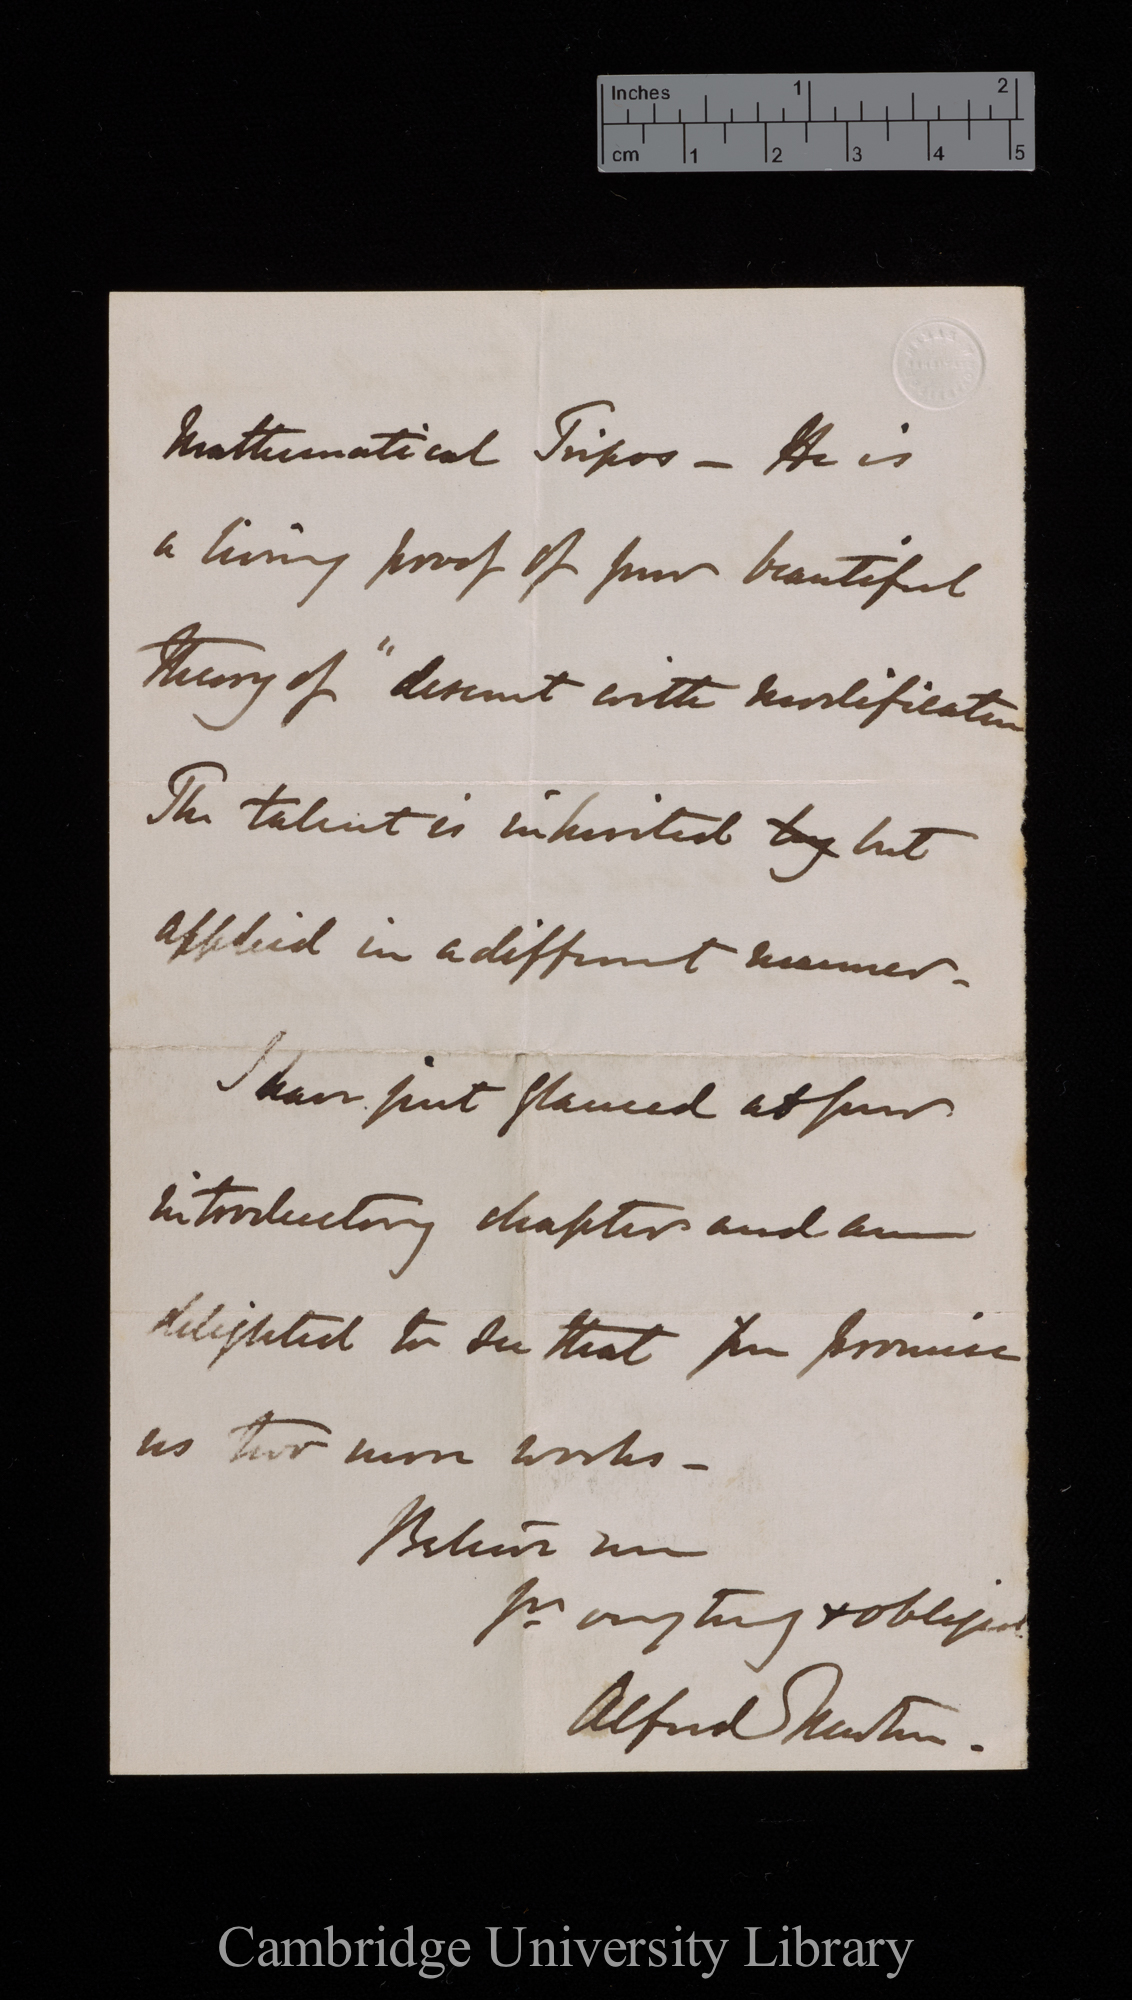 Inches 1 2
cm 1 2 3 4 5
Mathematical Tripos – He is
a living proof of your beautiful
theory of "descent with modification
The talent is inherited by but
applied in a different manner –
I have just glanced at your
introductory chapter and am
delighted to see that you promise
us two more works –
Believe me
yrs very truly & obliged
Alfred Newton .
Cambridge University Library